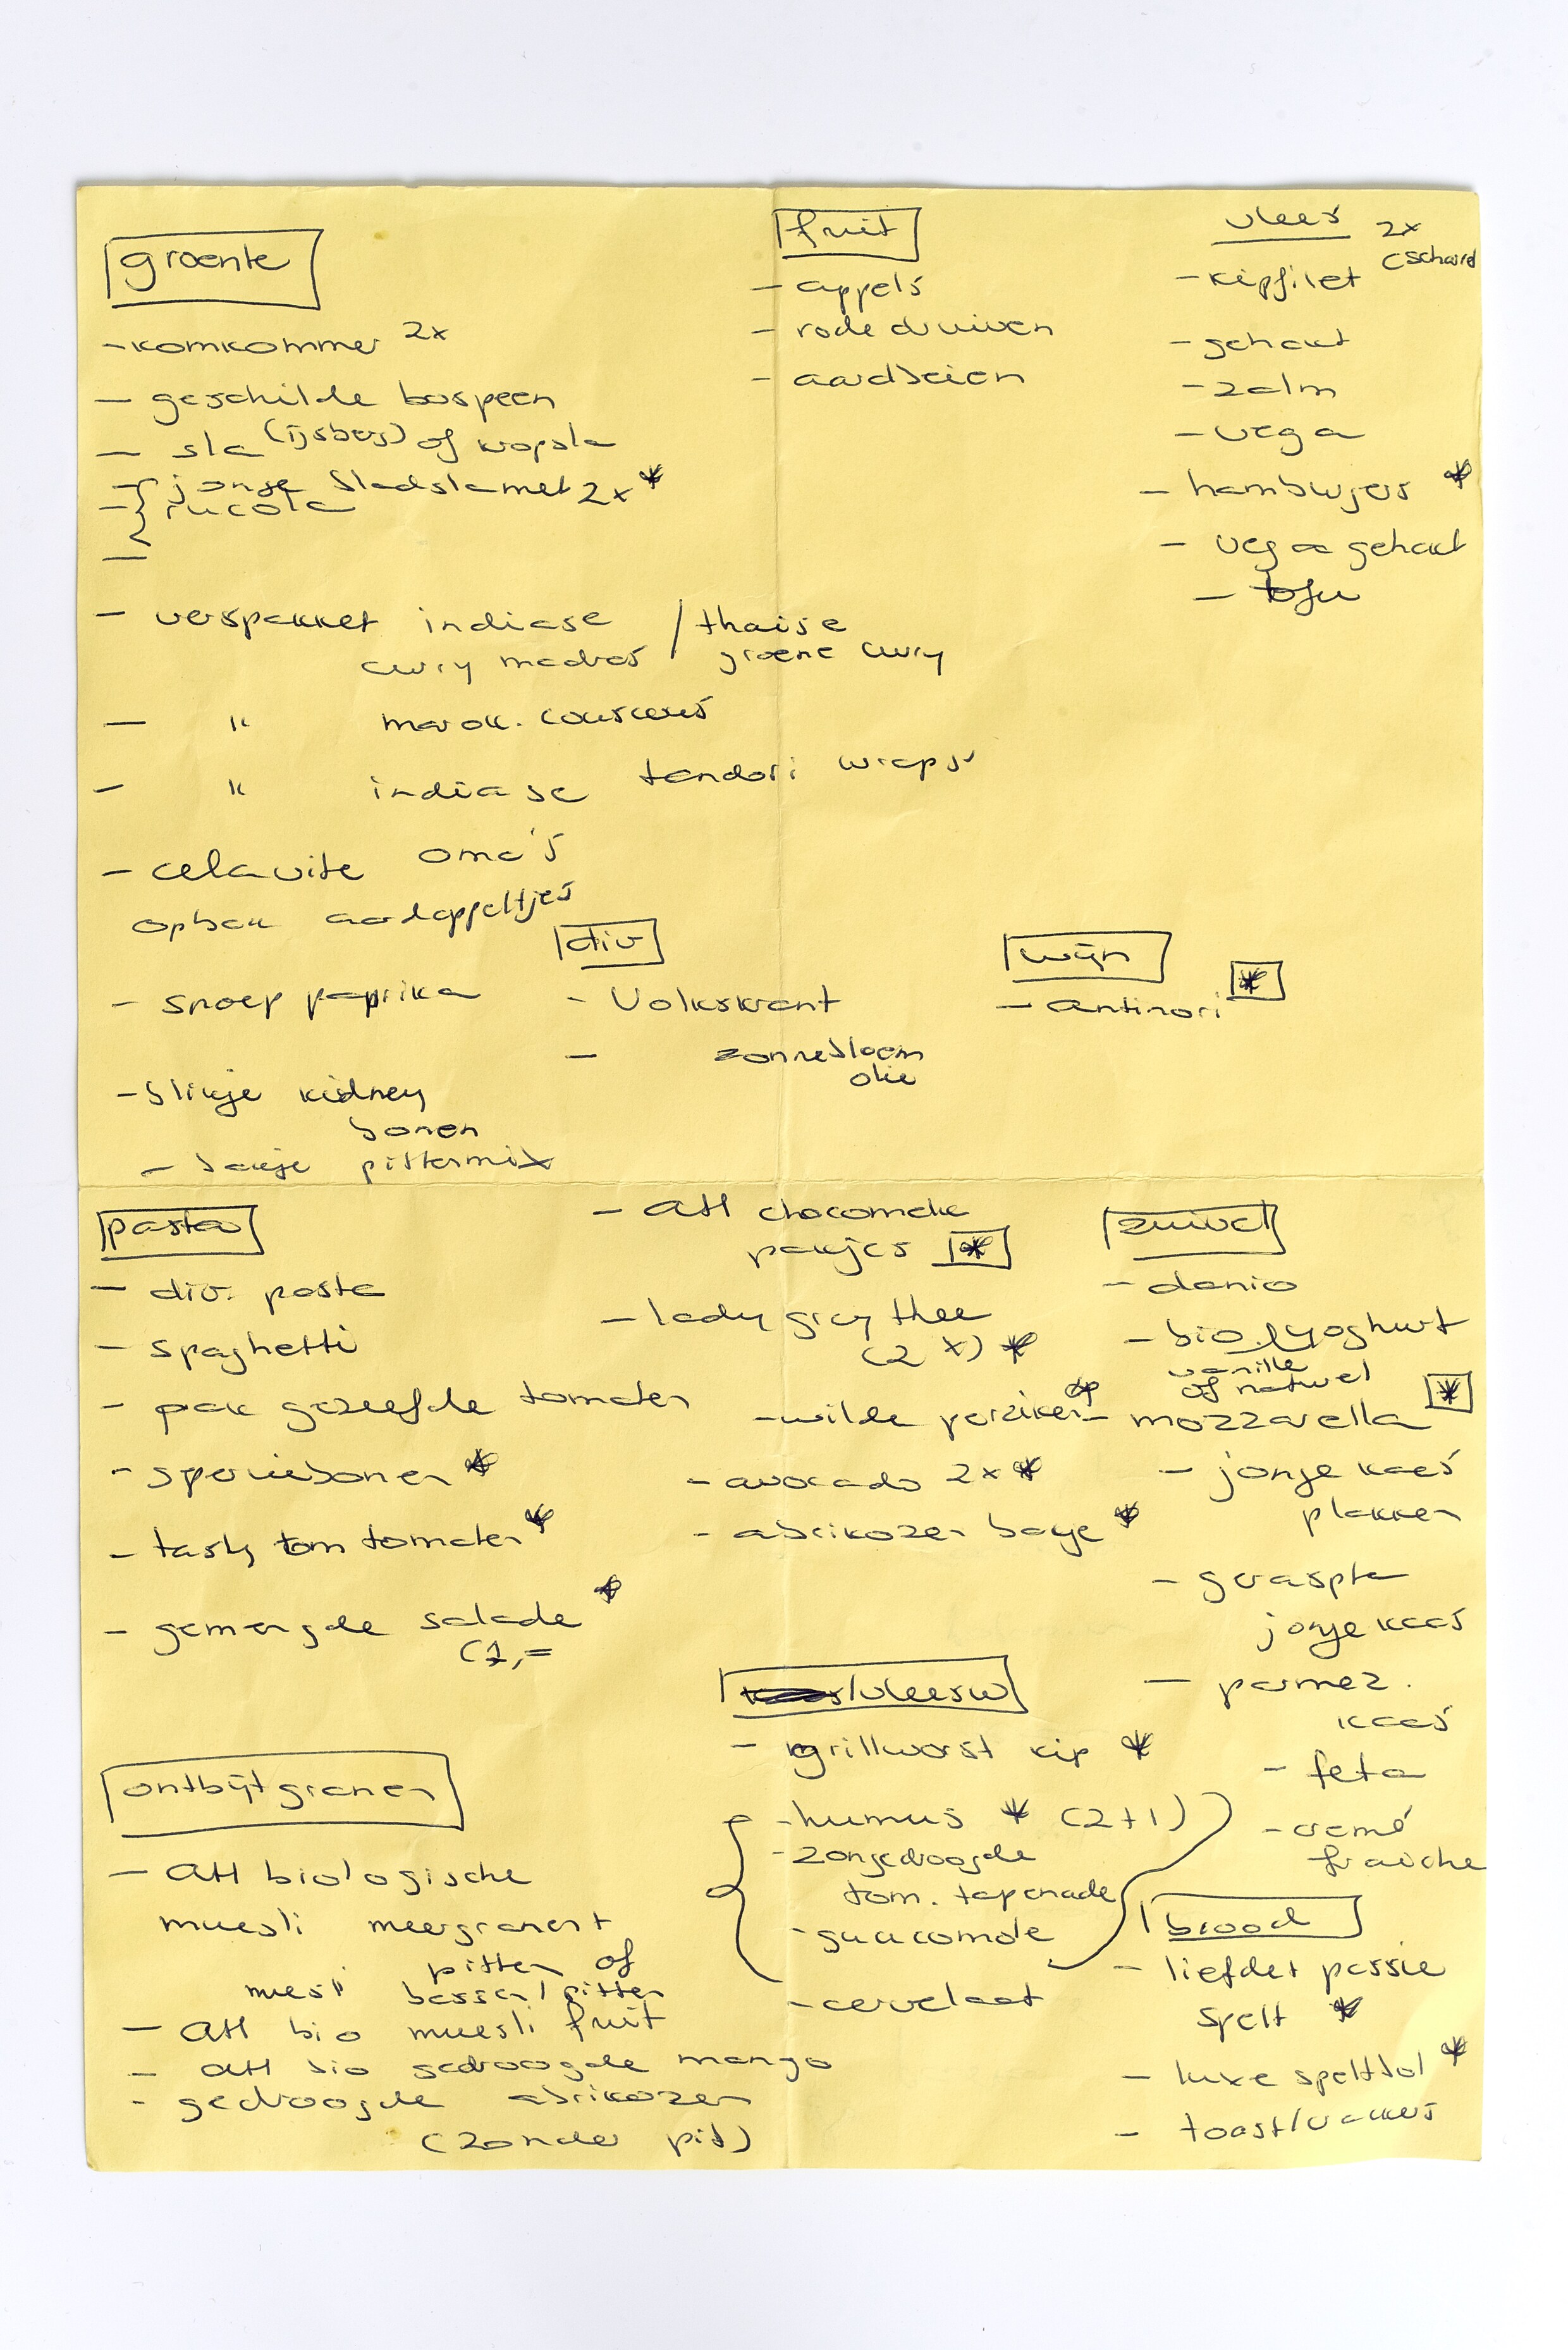 groente
- komkommer 2x
- geschilde bospeen
- sla (ijsberg) of kropsla
- jonge bladslamel 2x *
- rucola
-
- verspakket indiase / thaise
curry madras groene curry
- " marok. couscous
- " indiase tandori wraps
- celavite oma's
opbak aardappeltjes
- snoep paprika
- blikje kidney
bonen
- bakje pittenmix
fruit
- appels
- rode druiven
- aardbeien
vlees
- kipfilet 2x
- gehakt
- zalm
- vega
- hamburgers *
- vega gehakt
- tofu
div
- Volkskrant
- zonnebloem
olie
wijn
- antinori *
pasta
- div. pasta
- spaghetti
- pak gezeefde tomaten
- sperziebonen *
- tasty tom tomaten *
- gemengde salade *
(1,=
- AH chocomelk
pakjes *
- lady grey thee
(2x) *
- wilde perziken *
- avocado 2x *
- abrikozen bakje *
zuivel
- danio
- bio. yoghurt
vanille
of naturel
- mozzarella *
- jonge kaas
plakken
- geraspte
jonge kaas
- parmez.
kaas
- feta
- cremé
fraiche
/vleesw
- grillworst kip *
- humus * (2+1)
- zongedroogde
tom. tapenade
- guacomole
- cervelaat
ontbijtgranen
- AH biologische
muesli meergranen +
pitten of
muesli bessen/pitten
- AH bio muesli fruit
- AH bio gedroogde mango
- gedroogde abrikozen
(zonder pit)
brood
- liefde + passie
spelt *
- luxe speltbol *
- toast/crackers